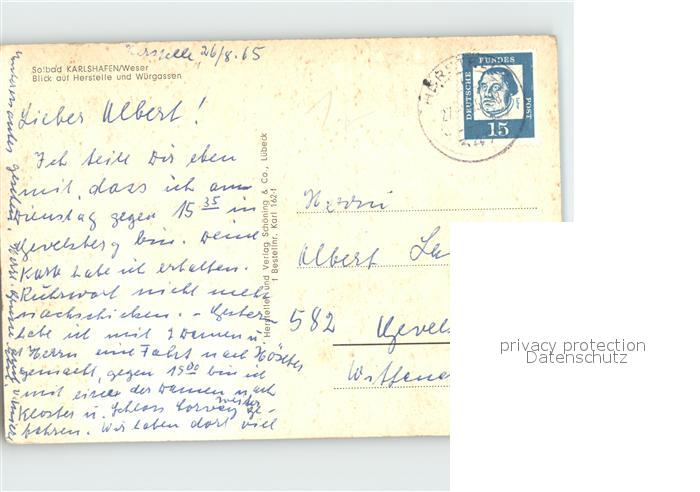 Herstelle, 26/8.65
Solbad KARLSHAFEN/Weser
Blick auf Herstelle und Würgassen
Lieber Albert!
Ich teile Dir eben
mit, dass ich am
Dienstag gegen 15 35 in
Gevelsberg bin. Deine
Karte habe ich erhalten.
nicht mehr
nachschicken. - Gestern
habe ich mit 2 Damen u.
1 Herrn eine Fahrt nach Höxter
gemacht, gegen 15 00 bin ich
mit einer der Damen nach
Kloster u. Schloss Corvey weiter ge-
fahren. Wir haben dort viel
Hersteller und Verlag Schöning & Co., Lübeck
Bestellnr. Karl 162
DEUTSCHE BUNDES POST
15
Herrn
Albert
582 Gevels
privacy protection
Datenschutz